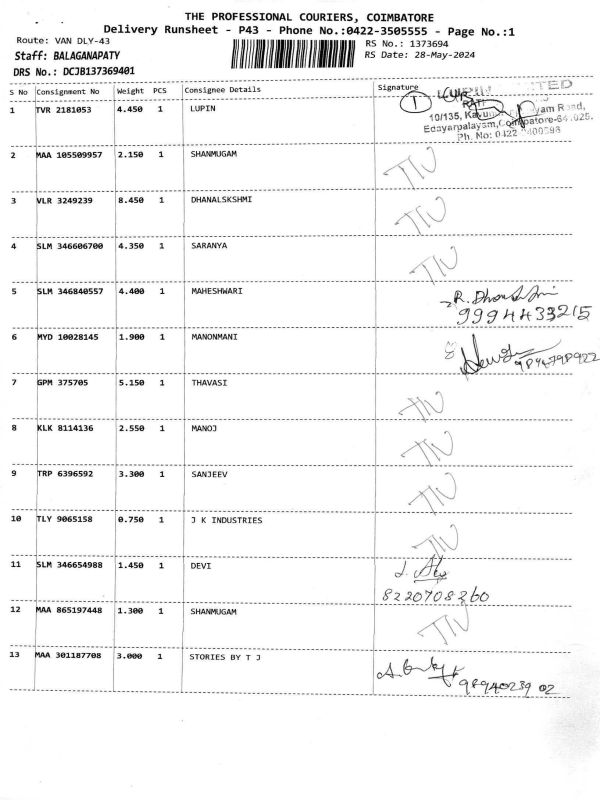 THE PROFESSIONAL COURIERS, COIMBATORE
Delivery Runsheet - P43 - Phone No.:0422-3505555 - Page No.:1
Route: VAN DLY-43
RS No.: 1373694
Staff: BALAGANAPATY
RS Date: 28-May-2024
DRS No.: DCJB137369401
S No Consignment No Weight PCS Consignee Details Signature
1 TVR 2181053 4.450 1 LUPIN
10/135,
Edayarpalayam, Coimbatore-641025.
Ph. No: 0422
2 MAA 105509957 2.150 1 SHANMUGAM
3 VLR 3249239 8.450 1 DHANALSKSHMI
4 SLM 346606700 4.350 1 SARANYA
5 SLM 346840557 4.400 1 MAHESHWARI
9994433215
6 MYD 10028145 1.900 1 MANONMANI
7 GPM 375705 5.150 1 THAVASI
8 KLK 8114136 2.550 1 MANOJ
9 TRP 6396592 3.300 1 SANJEEV
10 TLY 9065158 0.750 1 J K INDUSTRIES
11 SLM 346654988 1.450 1 DEVI
8220708260
12 MAA 865197448 1.300 1 SHANMUGAM
13 MAA 301187708 3.000 1 STORIES BY T J
9894023902